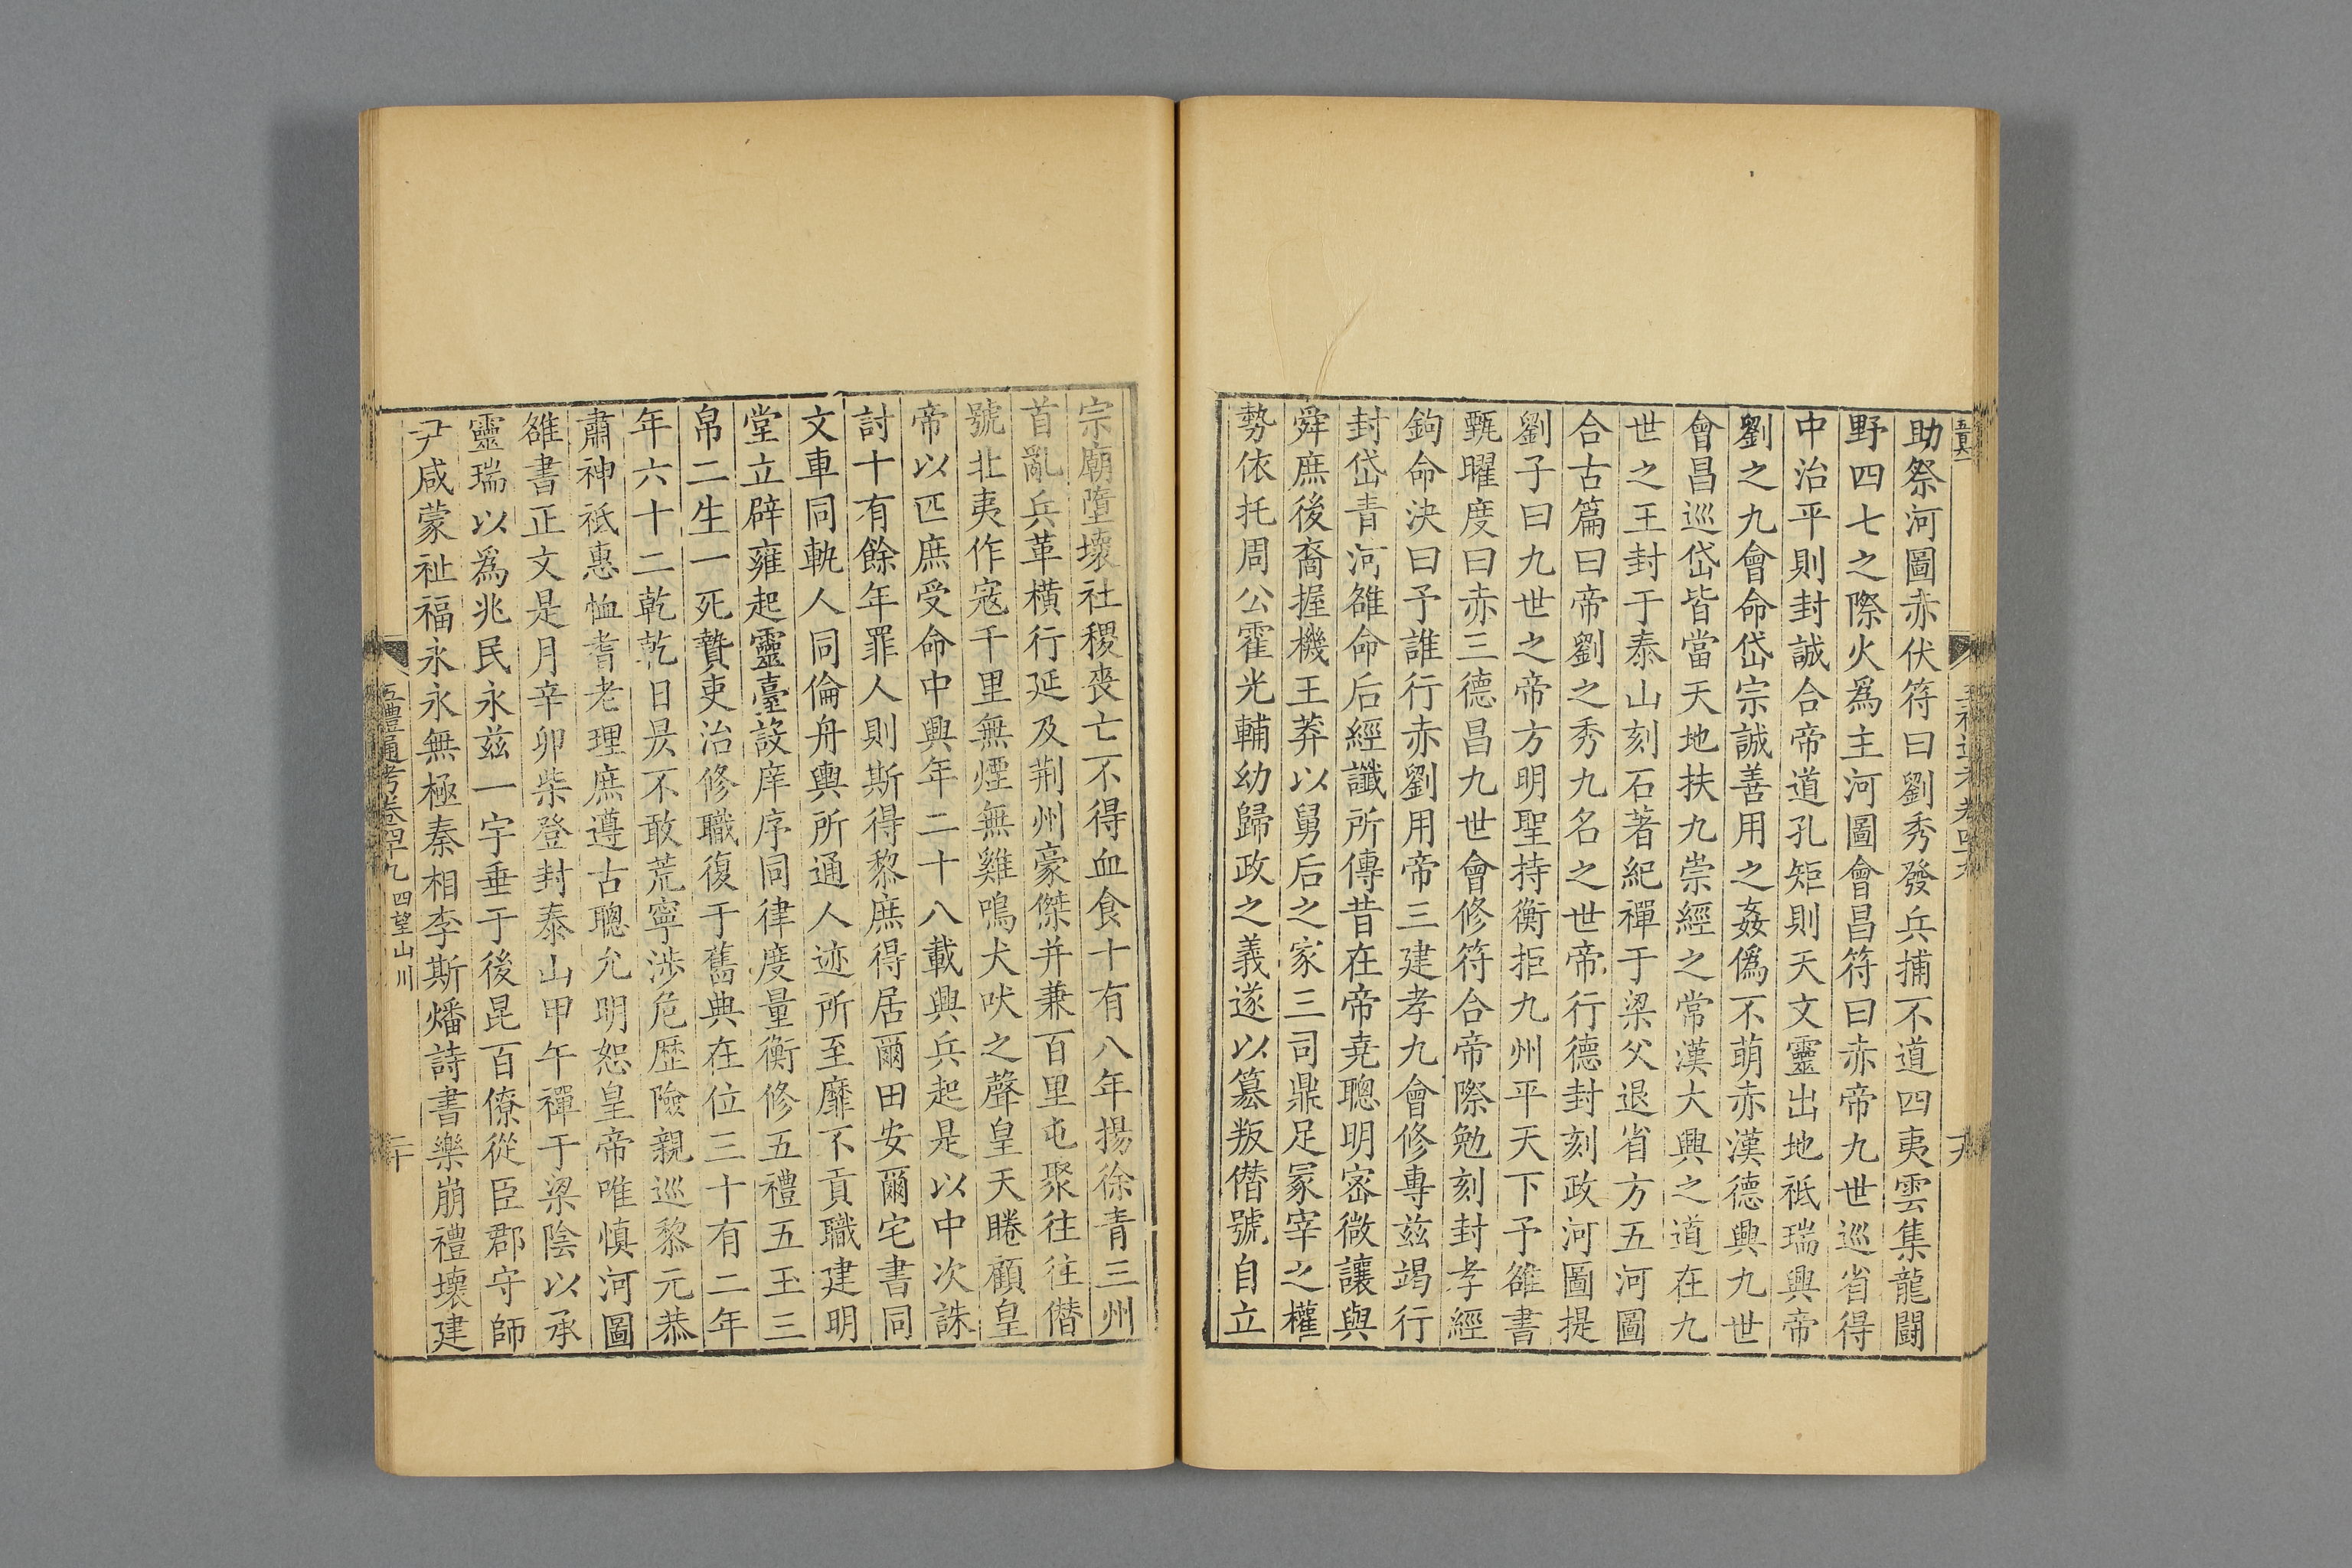 助祭河圖赤伏符曰劉秀發兵捕不道四夷雲集龍鬭
野四七之際火爲主河圖會昌符曰赤帝九世巡省得
中治平則封誠合帝道孔矩則天文靈出地祗瑞興帝
劉之九會命岱宗誠善用之姦僞不萌赤漢德興九世
會昌巡岱皆當天地扶九崇經之常漢大興之道在九
世之王封于泰山刻石著紀禪于梁父退省方五河圖
合古篇曰帝劉之秀九名之世帝行德封刻政河圖提
劉子曰九世之帝方明聖持衡拒九州平天下予雒書
甄曜度曰赤三德昌九世會修符合帝際勉刻封孝經
鉤命決曰予誰行赤劉用帝三建孝九會修專兹竭行
封岱青河雒命后經讖所傳昔在帝堯聰明宻微讓與
舜庶後裔握機王莽以舅后之家三司鼎足冢宰之權
勢依托周公霍光輔幼歸政之義遂以簒叛僭號自立
宗廟墮壞社稷喪亡不得血食十有八年揚徐青三州
首亂兵革橫行延及荆州豪傑并兼百里屯聚往往僭
號北夷作寇千里無煙無雞鳴犬吠之聲皇天睠顧皇
帝以匹庶受命中興年二十八載興兵起是以中次誅
討十有餘年罪人則斯得黎庶得居爾田安爾宅書同
文車同軌人同倫舟輿所通人迹所至靡不貢職建明
堂立辟雍起靈臺設庠序同律度量衡修五禮五玉三
帛二生一死贄吏治修職復于舊典在位三十有二年
年六十二乾乾日昃不敢荒寧涉危歷險親巡黎元恭
肅神祗惠恤耆老理庶遵古聰允明恕皇帝唯慎河圖
雒書正文是月辛卯柴登封泰山甲午禪于梁陰以承
靈瑞以爲兆民永兹一宇垂于後昆百僚從臣郡守師
尹咸蒙祉福永永無極秦相李斯燔詩書樂崩禮壞建
五禮通考卷四十九 四望山川
二十